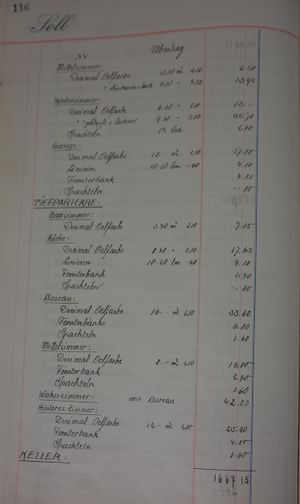 116
Soll
Übertrag
Mittelzimmer:
Dreimal Oelfarbe 2.10 6.50
13.95
Wohnzimmer:
Dreimal Oelfarbe 2.10
Spachteln 2.40
Garage:
Dreimal Oelfarbe 18.- m² 2.10 37.80
Linieren 10.20 lm -.40 4.10
Fensterbank 4.80
Spachteln -.80
TIEFPARTERRE:
Badzimmer:
Dreimal Oelfarbe 3.40 m² 2.10 7.15
Küche:
Dreimal Oelfarbe 8.40 " 2.10 17.65
Linieren 10.20 lm -.40 4.10
Fensterbank 2.40
Spachteln -.80
Bureau:
Dreimal Oelfarbe 16.- m² 2.10 33.60
Fensterbänke 6.80
Spachteln 1.60
Mittelzimmer:
Dreimal Oelfarbe 8.- m² 2.10 16.80
Fensterbank 2.40
Spachteln 1.60
Wohnzimmer: wie Bureau 42.00
Hinteres Zimmer:
Dreimal Oelfarbe 12.- m² 2.10 25.20
Fensterbank
Spachteln 1.60
KELLER:
1667 15